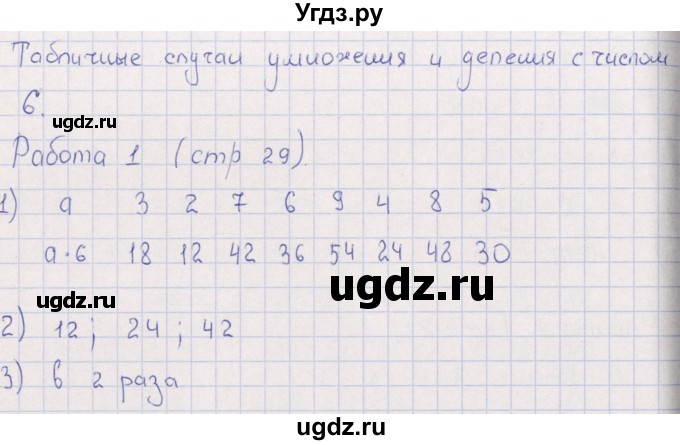 Угдз.ру
Табличные случаи умножения и деления с числом
6.
ugdz.ru
ugdz.ru
Работа 1 (стр 29).
1) a 3 2 7 6 9 4 8 5
a·6 18 12 42 36 54 24 48 30
ugdz.ru
ugdz.ru
2) 12; 24; 42
3) в 2 раза
ugdz.ru
ugdz.ru